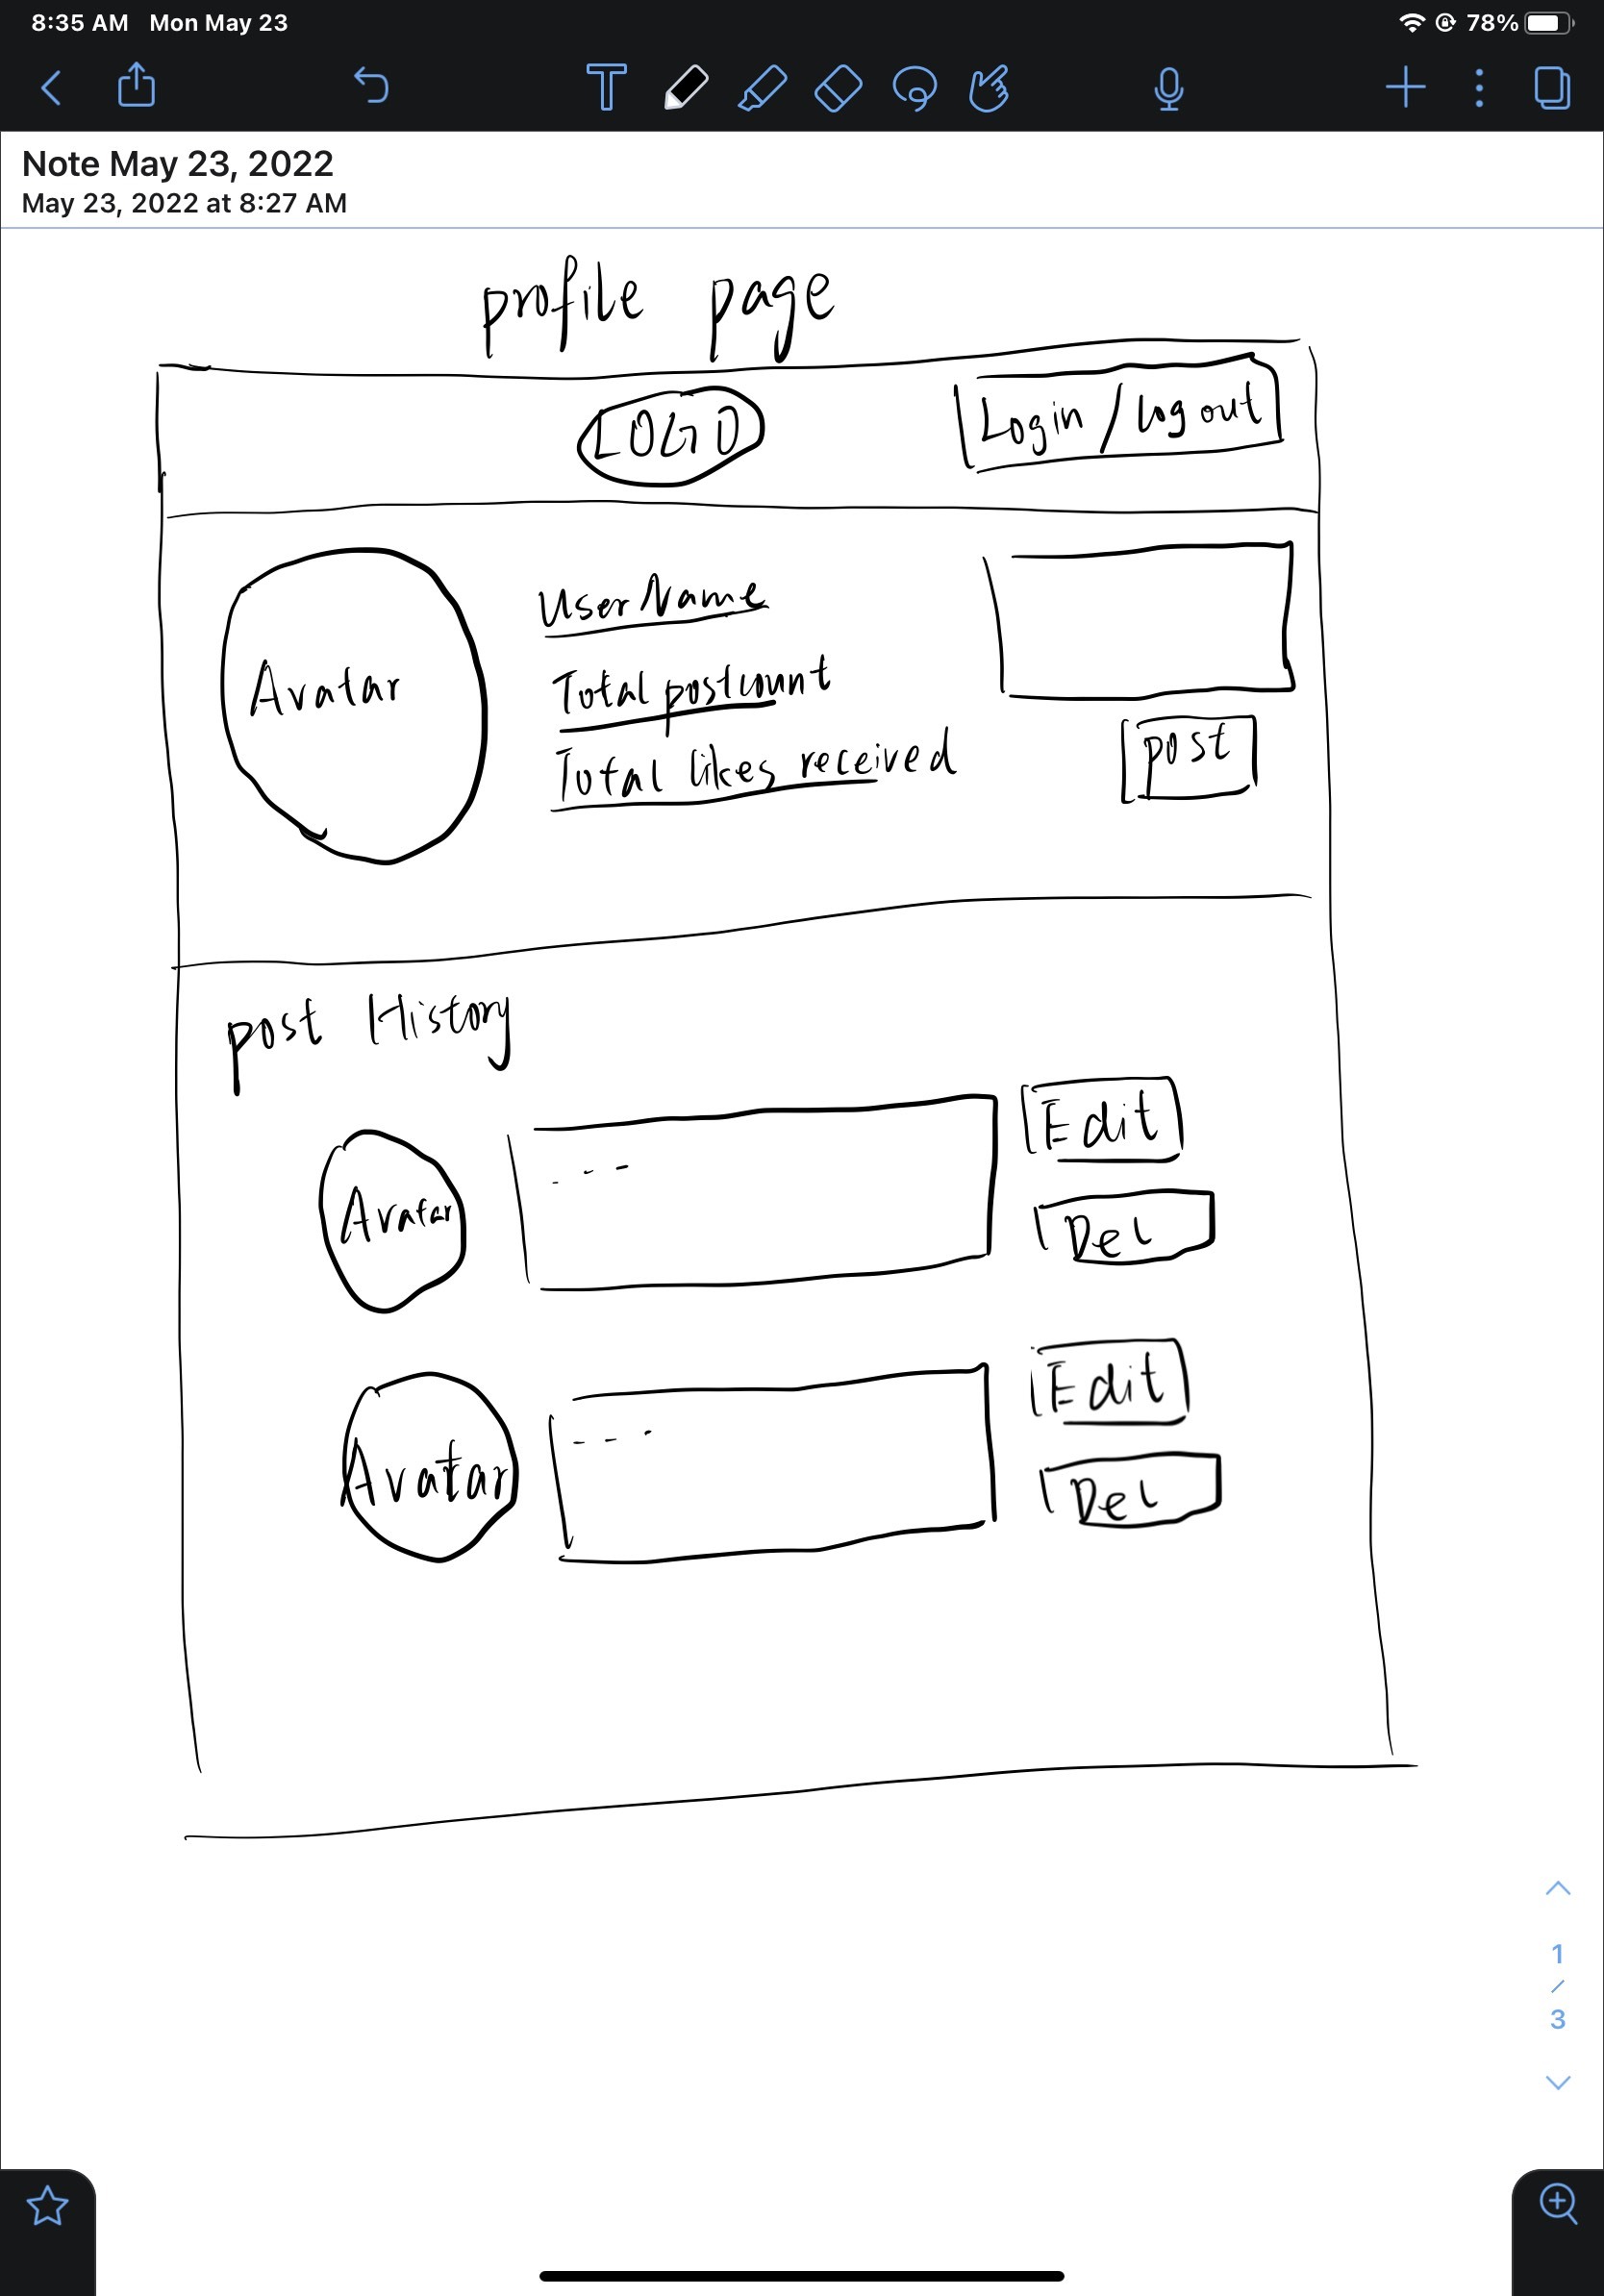 8:35 AM Mon May 23 78%
Note May 23, 2022
May 23, 2022 at 8:27 AM
profile page
LOGO
Login / Logout
UserName
Avatar
Total postcount
Total likes received
post
post History
Edit
Avatar
Del
Edit
Avatar
Del
1
/
3